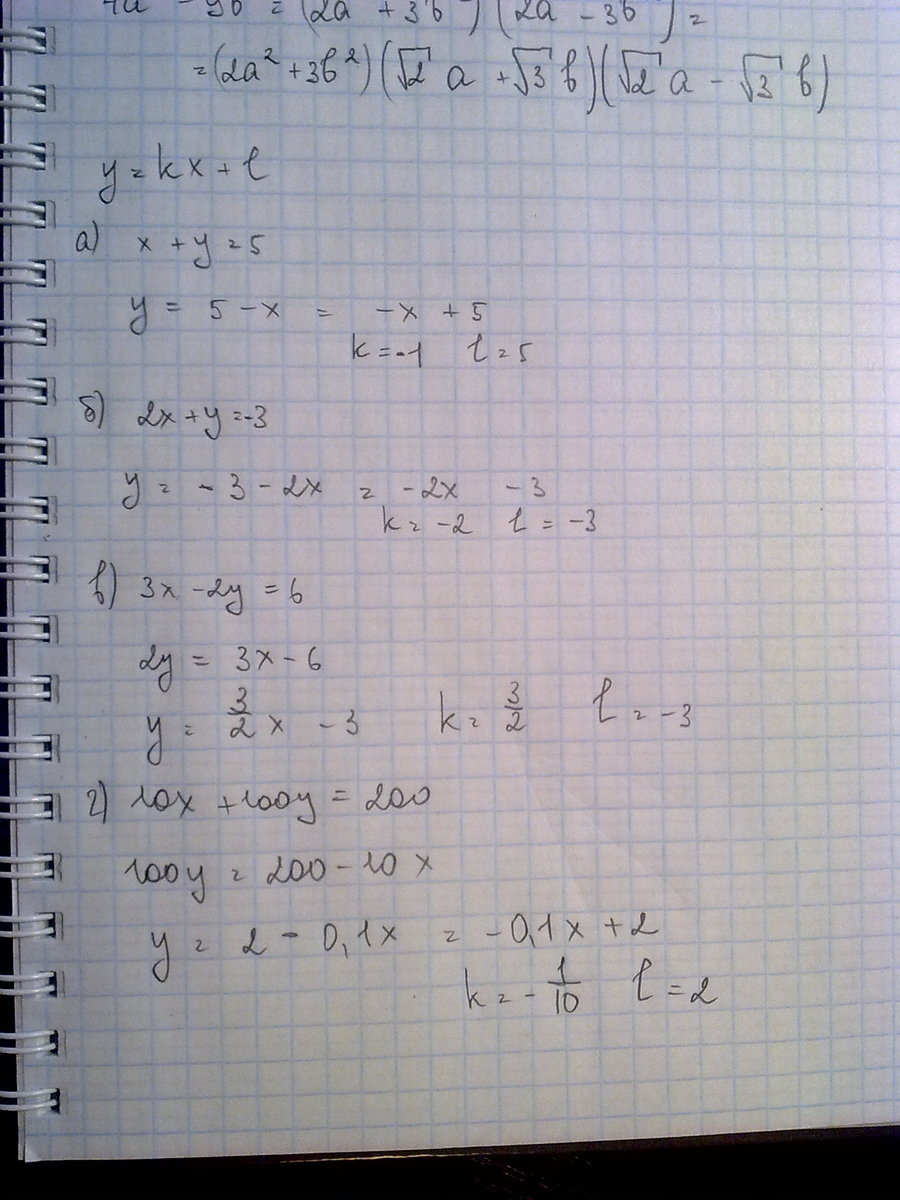 4a⁴ - 9b⁴ = (2a² + 3b²)(2a² - 3b²) =
= (2a² + 3b²)(√2 a + √3 b)(√2 a - √3 b)
y = kx + l
а) x + y = 5
y = 5 - x = -x + 5
k = -1 l = 5
б) 2x + y = -3
y = -3 - 2x = -2x - 3
k = -2 l = -3
в) 3x - 2y = 6
2y = 3x - 6
y = 3/2 x - 3 k = 3/2 l = -3
г) 10x + 100y = 200
100y = 200 - 10x
y = 2 - 0,1x = -0,1x + 2
k = -1/10 l = 2